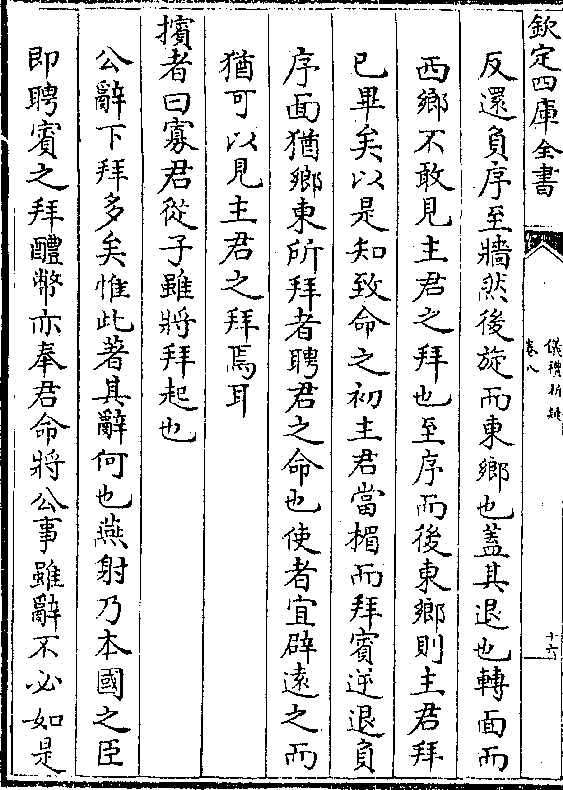 欽定四庫全書
儀禮析疑
卷八
十六
反還負序至牆然後旋而東鄉也蓋其退也轉面而
西鄉不敢見主君之拜也至序而後東鄉則主君拜
已畢矣以是知致命之初主君當楣而拜賓逆退負
序面猶鄉東所拜者聘君之命也使者宜辟遠之而
猶可以見主君之拜焉耳
擯者曰寡君從子雖將拜起也
公辭下拜多矣惟此著其辭何也燕射乃本國之臣
即聘賓之拜醴幣亦奉君命將公事雖辭不必如是